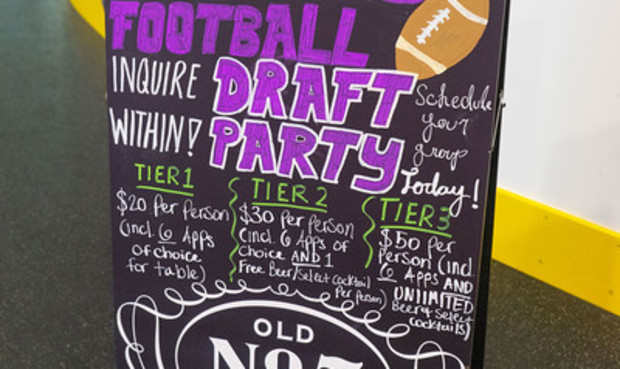 FOOTBALL
INQUIRE
DRAFT
WITHIN!
PARTY
Schedule
your
group
Today!
TIER 1
$20 Per Person
(incl. 6 Apps
of choice
for table)
TIER 2
$30 Per Person
(incl. 6 Apps of
choice AND 1
Free Beer/Select Cocktail
Per Person)
TIER 3
$50 per
Person (incl.
6 Apps AND
UNLIMITED
Beer & Select
Cocktails)
OLD
No. 7